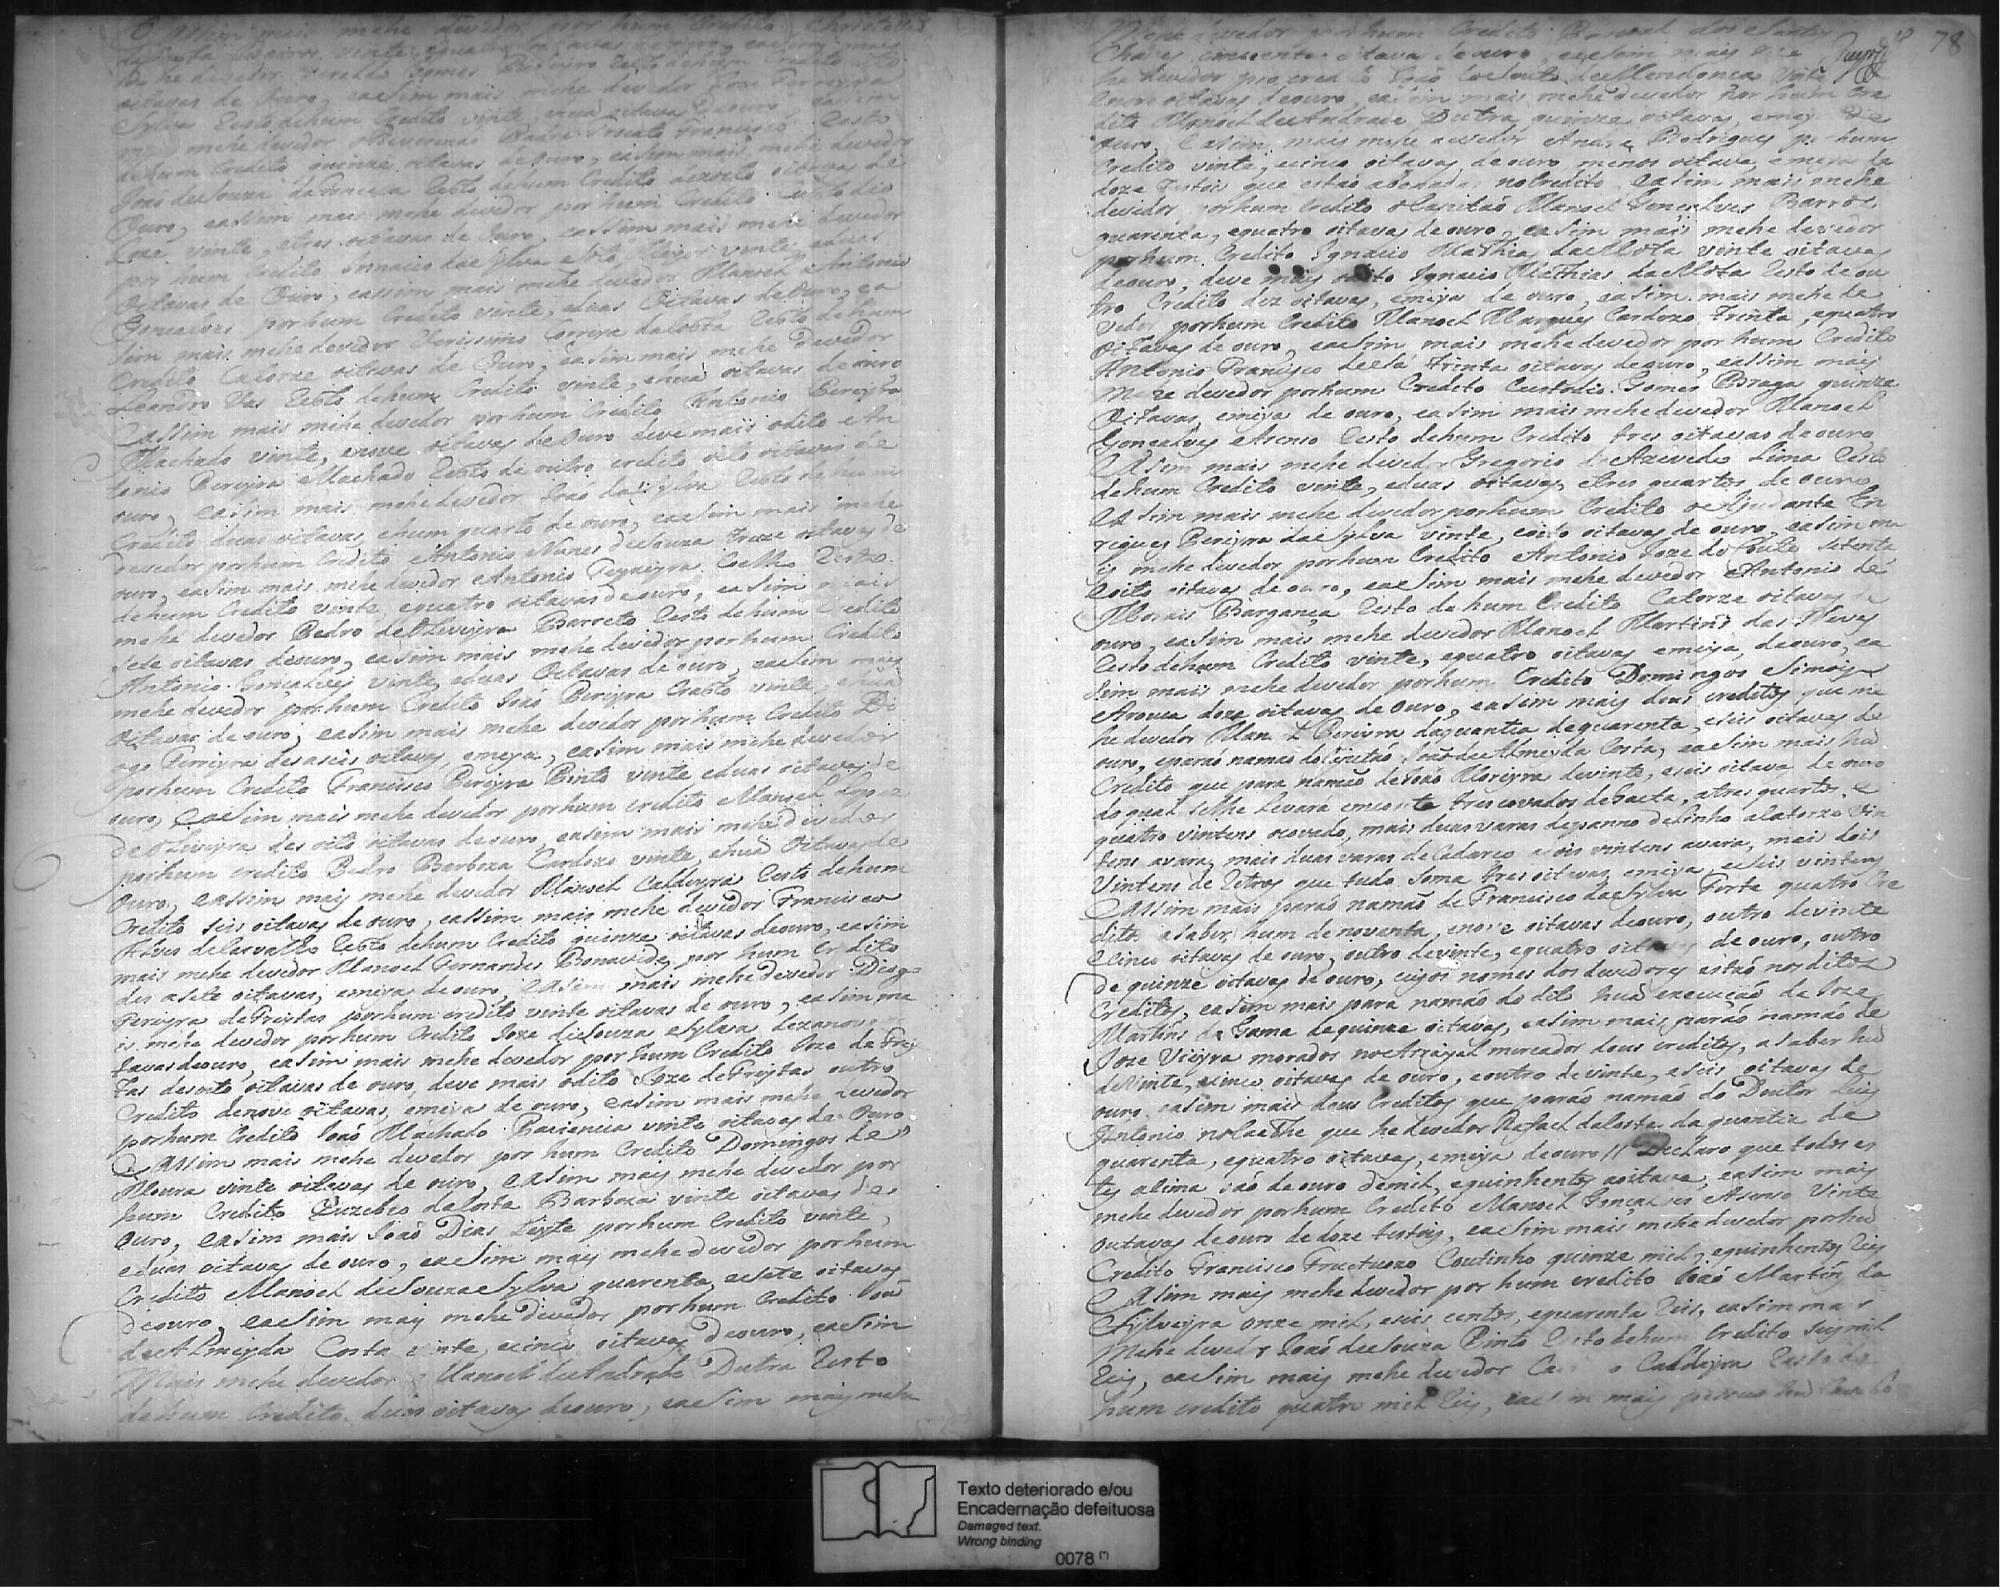 E assim mais mehe devedor por hum Credito Christovaõ
vinte, equatro oitavas de ouro, eassim mais
he devedor Gomes Resto dehum Credito oito
oitavas de Ouro, eassim mais mehe devedor Joze Ferreyra
Sylva Resto dehum Credito vinte, ehuã oitava deouro, eassim
mehe devedor Reverendo Padre Francisco Resto
dehum Credito quinze oitavas de ouro, eassim mais mehe devedor
Joaõ deSouza daFonceca Resto dehum Credito dezoito oitavas de
Ouro, eassim mais mehe devedor por hum Credito Custodio
Loze vinte, etres oitavas de Ouro, eassim mais mehe devedor
por hum Credito Innacio daSylva vinte, eduas
Oitavas de Ouro, eassim mais mehe devedor Manoel Antonio
Goncalves porhum Credito vinte, eduas Oitavas deOuro, ea
sim mais mehe devedor Verissimo Correya daCosta Resto dehum
Credito Catorze oitavas de Ouro, easim mais mehe devedor
Leandro Vas Resto dehum Credito vinte, ehuã oitavas de ouro
Eassim mais mehe devedor porhum Credito Antonio Pereyra
Machado vinte, enove oitavas de Ouro deve mais odito An
tonio Pereyra Machado Resto de outro credito oito oitavas de
ouro, easim mais mehe devedor Joaõ daSylva Resto de hum
Credito duas oitavas, ehum quarto de ouro, easim mais mehe
devedor porhum Credito Antonio Nunes deSouza treze oitavas de
ouro, easim mais mehe devedor Antonio Coelho Resto
dehum Credito vinte, equatro oitavas de ouro, easim mais
mehe devedor Pedro deOliveyra Barreto Resto dehum Credito
Sete oitavas deouro, easim mais mehe devedor porhum Credito
Antonio Goncalves vinte, eduas Oitavas de ouro, easim mais
mehe devedor porhum Credito Joaõ Pereyra Crasto vinte, ehuã
Oitavas de ouro, easim mais mehe devedor porhum Credito Di
ogo Ferreyra desaseis oitavas, emeya, easim mais mehe devedor
porhum Credito Francisco Pereyra Pinto vinte eduas oitavas de
ouro, easim mais mehe devedor porhum credito Manoel Lopes
deOliveyra des oito oitavas deouro, easim mais mehe devedor
porhum credito Pedro Barboza Cardozo vinte, ehuã Oitavas de
Ouro, eassim mais mehe devedor Manoel Caldeyra Resto dehum
Credito Seis oitavas de ouro, eassim mais mehe devedor Francisco
Alves deCarvalho Resto dehum Credito quinze oitavas deouro, easim
mais mehe devedor Manoel Fernandes Bonavides por hum Credito
des asete oitavas, emeya de ouro, easim mais mehe devedor Diogo
Pereyra deFreytas porhum credito vinte oitavas de ouro, easim ma
is mehe devedor porhum Credito Joze deSouza eSylva dezanove oi
tavas deouro, easim mais mehe devedor por hum Credito Joze de Frey
tas desoito oitavas de ouro, deve mais odito Joze deFreytas outro
Credito denove oitavas, emeya de ouro, easim mais mehe devedor
porhum Credito Joaõ Machado Paciencia vinte oitavas de Ouro
Eassim mais mehe devedor por hum Credito Domingos de
Moura vinte oitavas de ouro, easim mais mehe devedor por
hum Credito Euzebio daCosta Barboza vinte oitavas de
Ouro, easim mais Joaõ Dias Leyte porhum Credito vinte
eduas oitavas de ouro, easim mais mehe devedor porhum
Credito Manoel deSouza eSylva quarenta, esete oitavas
deouro, easim mais mehe devedor por hum Credito Joaõ
deAlmeyda Costa vinte ecinco oitavas deouro, easim
Mais mehe devedor Manoel deAndrade Dutra Resto
dehum Credito duas oitavas deouro, easim mais mehe
78
Mehe devedor porhum Credito Pascoal dosSantos
Chaves cincoenta oitavas deouro, easim mais
he devedor por credito Joaõ deMendonca vinte
enove oitavas deouro, easim mais mehe devedor por hum Cre
dito Manoel deAndrade Dutra quinze oitavas, emeya de
ouro, Easim mais mehe devedor Andre Rodrigues por hum
Credito vinte, ecinco oitavas de ouro menos oitava, emeya de
doze tostois que estaõ abonadas noCredito easim mais mehe
devedor porhum Credito oCapitaõ Manoel Goncalves Barros
quarenta, equatro oitavas de ouro, easim mais mehe devedor
porhum Credito Ignacio Mathias daMota vinte oitavas
deouro, deve mais odito Ignacio Mathias daMota Resto de ou
tro Credito dez oitavas, emeya de ouro, easim mais mehe de
vedor porhum Credito Manoel Marques Cardozo trinta, equatro
Oitavas de ouro, easim mais mehe devedor por hum Credito
Antonio Francisco deSá trinta oitavas deouro, eassim mais
Mehe devedor porhum Credito Custodio Gomes Braga quinze
Oitavas, emeya de ouro, easim mais mehe devedor Manoel
Goncalves Afonso Resto dehum Credito tres oitavas de ouro
Easim mais mehe devedor Gregorio de Azevedo Lima Resto
dehum Credito vinte, eduas oitavas, etres quartos de ouro
Easim mais mehe devedor porhum Credito oAjudante En
riques Pereyra daSylva vinte, eoito oitavas de ouro, easim ma
is mehe devedor porhum Credito Antonio Joze do Couto setenta
eoito oitavas de ouro, easim mais mehe devedor Antonio de
Morais Bargança Resto dehum Credito Catorze oitavas de
ouro, easim mais mehe devedor Manoel Martins das Neves
Resto dehum Credito vinte, equatro oitavas emeya, deouro, ea
sim mais mehe devedor porhum Credito Domingos Simois
Arouca doze oitavas de Ouro, easim mais dous creditos que me
he devedor Man.el Pereyra daquantia dequarenta, eseis oitavas de
ouro, eparaõ namaõ do Capitaõ Joaõ deAlmeyda Costa, easim mais hu
Credito que para namaõ deJoaõ Moreyra devinte, eseis oitavas de ouro
do qual selhe levara emconta trescovados debaeta, atres quartos, e
quatro vintens ocovado, mais duas varas depanno delinho acatorze vin
tens avara, mais duas varas de Cadarço adois vintens avara, mais dois
Vintens de Retros que tudo soma tres oitavas, emeya, eseis vintens
Eassim mais paraõ namaõ de Francisco daSylva Forte quatro Cre
ditos asaber, hum de noventa, enove oitavas deouro, outro devinte
ecinco oitavas de ouro, outro devinte, equatro oitavas de ouro, outro
de quinze oitavas de ouro, cujos nomes dos devedores estaõ nos ditos
Creditos, easim mais para namaõ do dito huã execuçaõ de Joze
Martins da Gama dequinze oitavas, easim mais paraõ namaõ de
Joze Vieyra morador noArayal mercador dous creditos, asaber hu
devinte, ecinco oitavas de ouro, eoutro devinte, eseis oitavas de
ouro, easim mais dous Creditos que paraõ namaõ do Doutor Luis
Antonio que he devedor Rafael daCosta da quantia de
quarenta, equatro oitavas, emeya deouro // Declaro que todos es
tes asima saõ de ouro demil, equinhentos aoitava, easim mais
mehe devedor porhum Credito Manoel Gonçalves Afonso Vinte
outavas deouro de doze tostois, easim mais mehe devedor porhu
Credito Francisco Fructuozo Coutinho quinze mil, equinhentos Reis
Easim mais mehe devedor por hum credito Joaõ Martins da
Sylveyra onze mil, eseis centos, equarenta Reis, easim mais
Mehe devedor Joaõ deSouza Pinto Resto dehum Credito
Reis, easim mais mehe devedor Caldeyra Resto de
hum credito quatro mil Reis, easim mais
Texto deteriorado e/ou
Encadernação defeituosa
Damaged text.
Wrong binding
0078 (*)